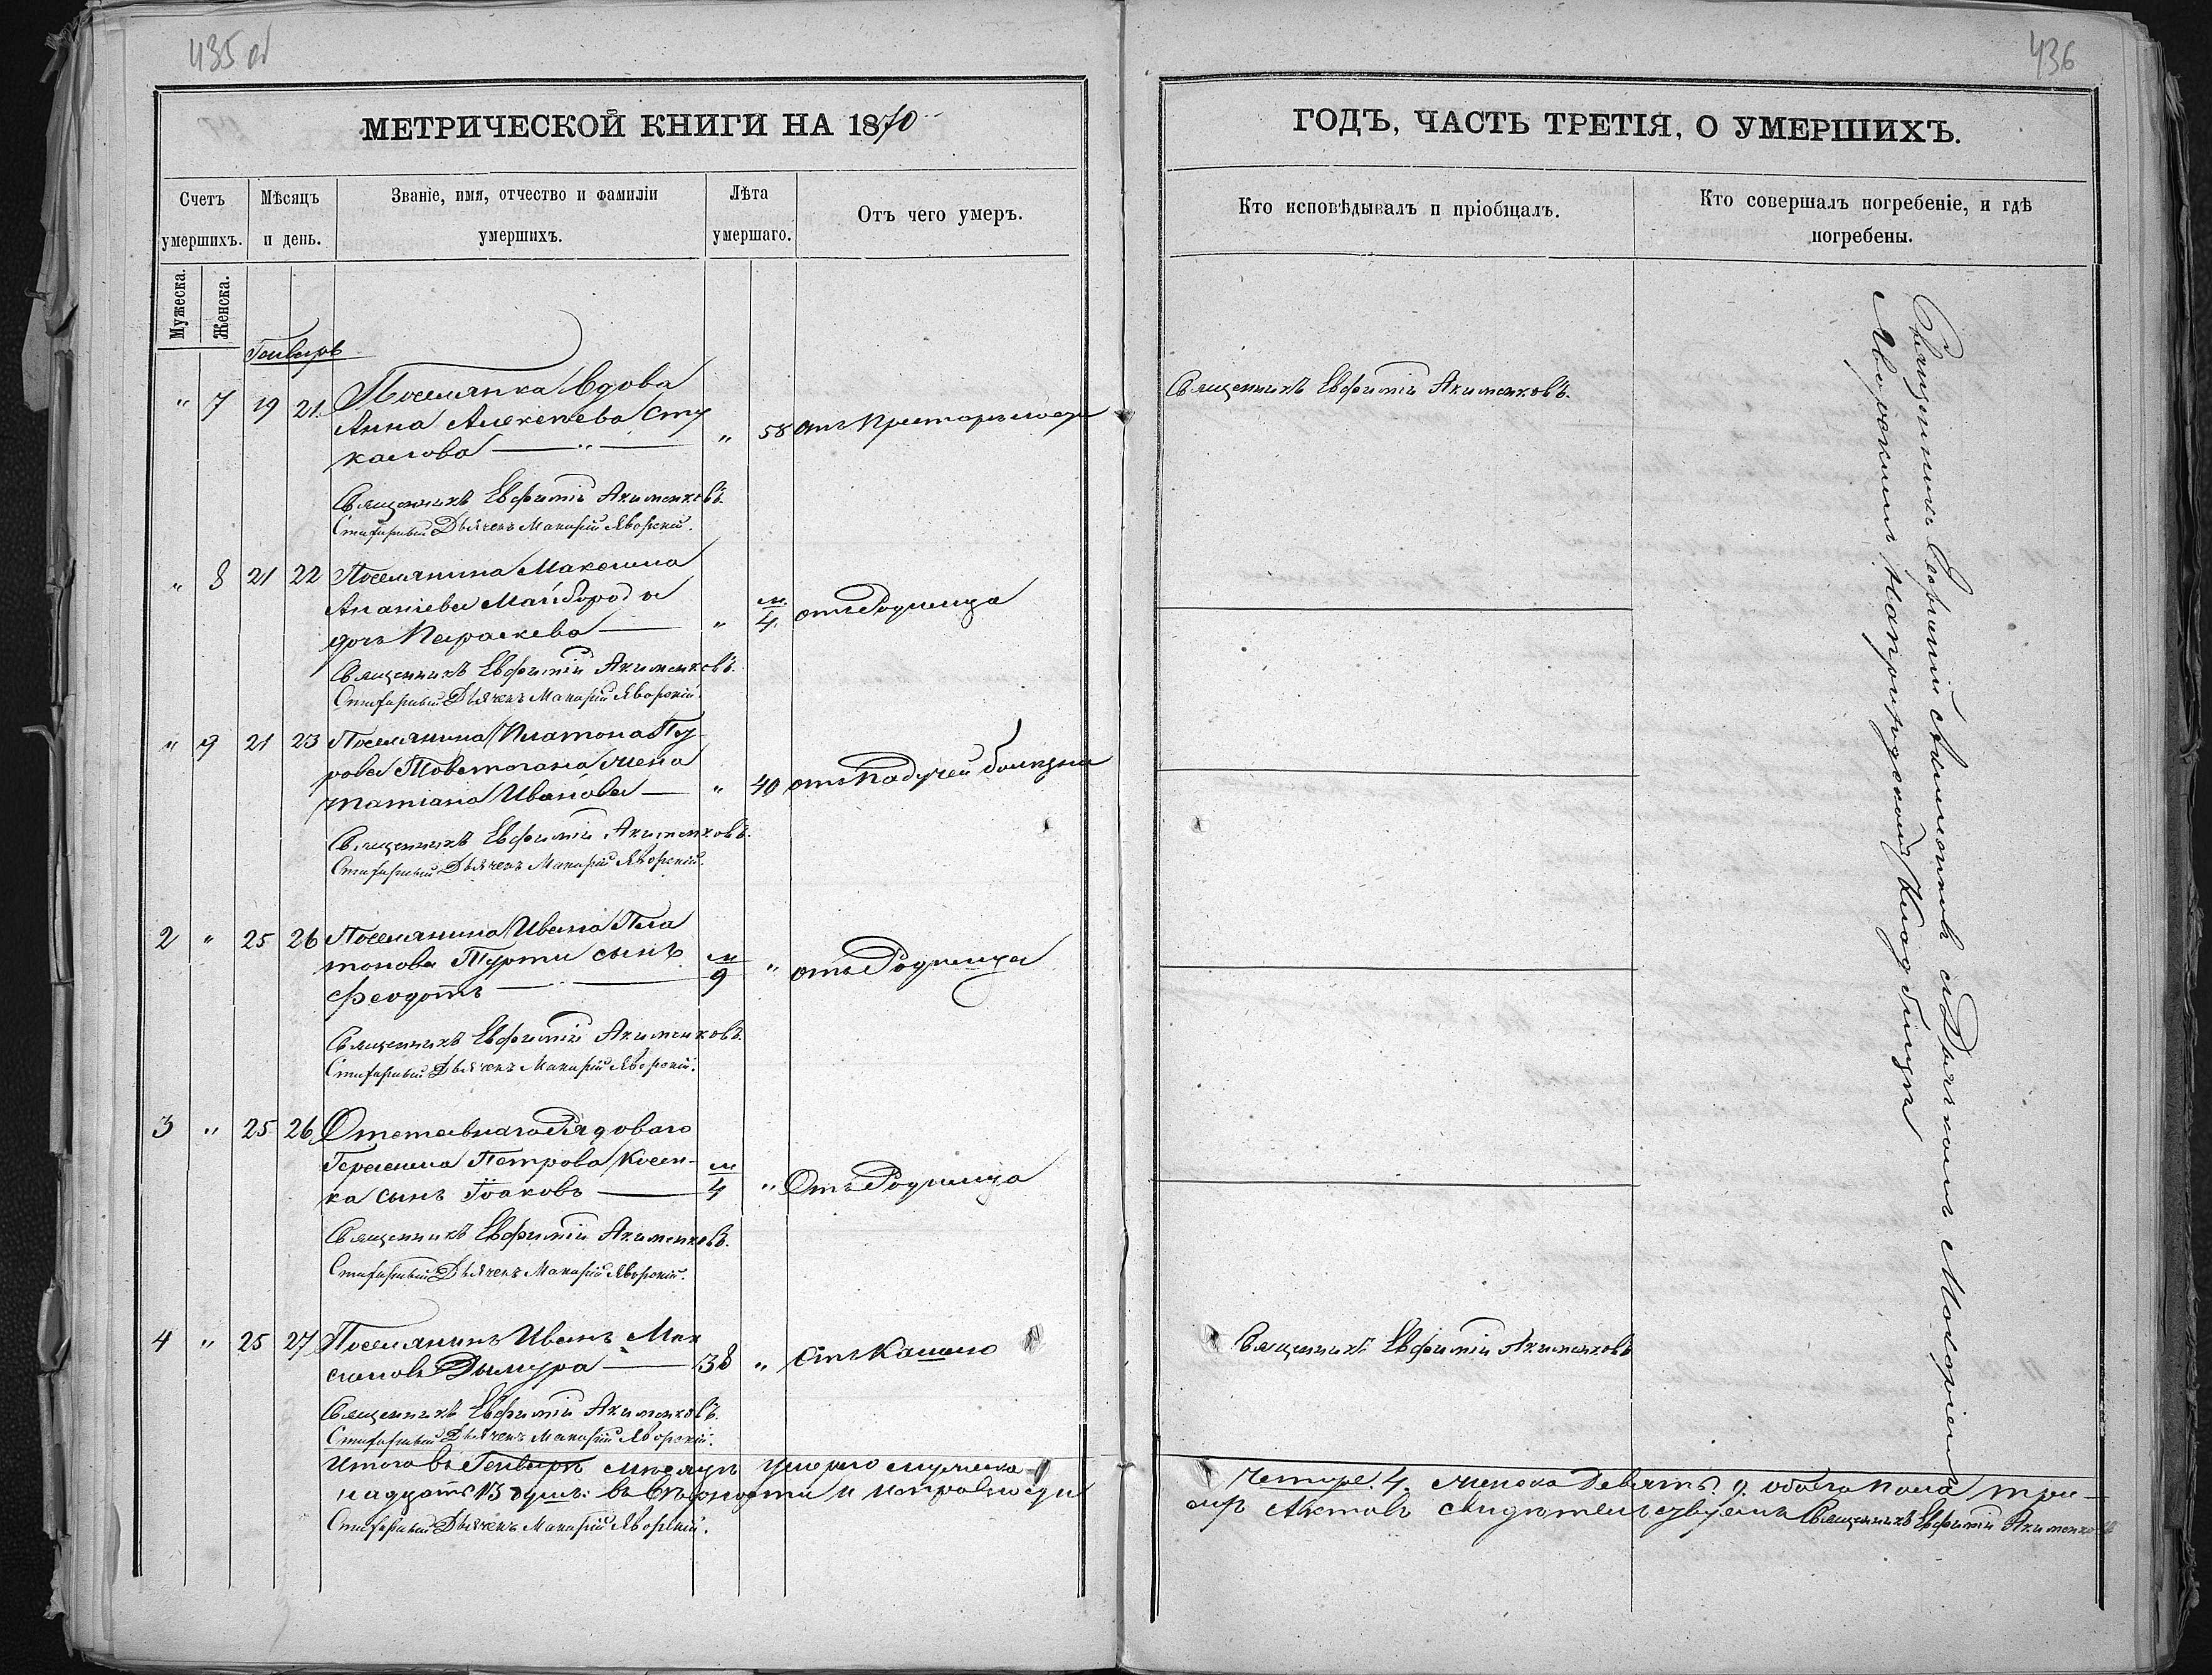 435 об
МЕТРИЧЕСКОЙ КНИГИ НА 1870
Счетъ умершихъ.
Мѣсяцъ и день.
Званіе, имя, отчество и фамиліи умершихъ.
Лѣта умершаго.
Отъ чего умеръ.
Мужеска.
Женска.
Генварь
" 7 19 21 Поселянка Вдова
Анна Алексѣева Сту
калова " 58 отъ престарелости
Священникъ Евфимій Акименковъ.
Стихарный Дьячекъ Макарій Яворскій.
" 8 21 22 Поселянина Максима
Ананіева Майборода
дочь Параскева " м. 4. отъ Родимца
Священникъ Евфимій Акименковъ.
Стихарный Дьячекъ Макарій Яворскій.
" 9 21 23 Поселянина Платона
Товстогана жена
татіана Иванова " 40 отъ падучей болезни
Священникъ Евфимій Акименковъ.
Стихарный Дьячекъ Макарій Яворскій.
2 " 25 26 Поселянина Ивана Пла
тонова сынъ м 9 " отъ Родимца
Феодотъ
Священникъ Евфимій Акименковъ.
Стихарный Дьячекъ Макарій Яворскій.
3 " 25 26 Отставнаго Рядоваго
Герасима Петрова Косен-
ка сынъ Іоаковъ м 4 " Отъ Родимца
Священникъ Евфимій Акименковъ.
Стихарный Дьячекъ Макарій Яворскій.
4 " 25 27 Поселянинъ Иванъ Мак
симовъ 38 " Отъ Кашлю
Священникъ Евфимій Акименковъ.
Стихарный Дьячекъ Макарій Яворскій.
Итого въ Генварѣ месяцѣ умерло мужеска
надцать 13 душъ: въ верности и исправности
Стихарный Дьячекъ Макарій Яворскій.
436
ГОДЪ, ЧАСТЬ ТРЕТІЯ, О УМЕРШИХЪ.
Кто исповѣдывалъ и пріобщалъ.
Кто совершалъ погребеніе, и гдѣ погребены.
Священникъ Евфимій Акименковъ.
Священникъ Евфимій Акименковъ съ Дьячкомъ Макаріемъ
Яворскимъ на приходскомъ Кладбищѣ
Священникъ Евфимій Акименковъ
Четыре. 4. женска Девять. 9. обоего пола три-
Актовъ свидетельствуемъ Священникъ Евфимій Акименковъ